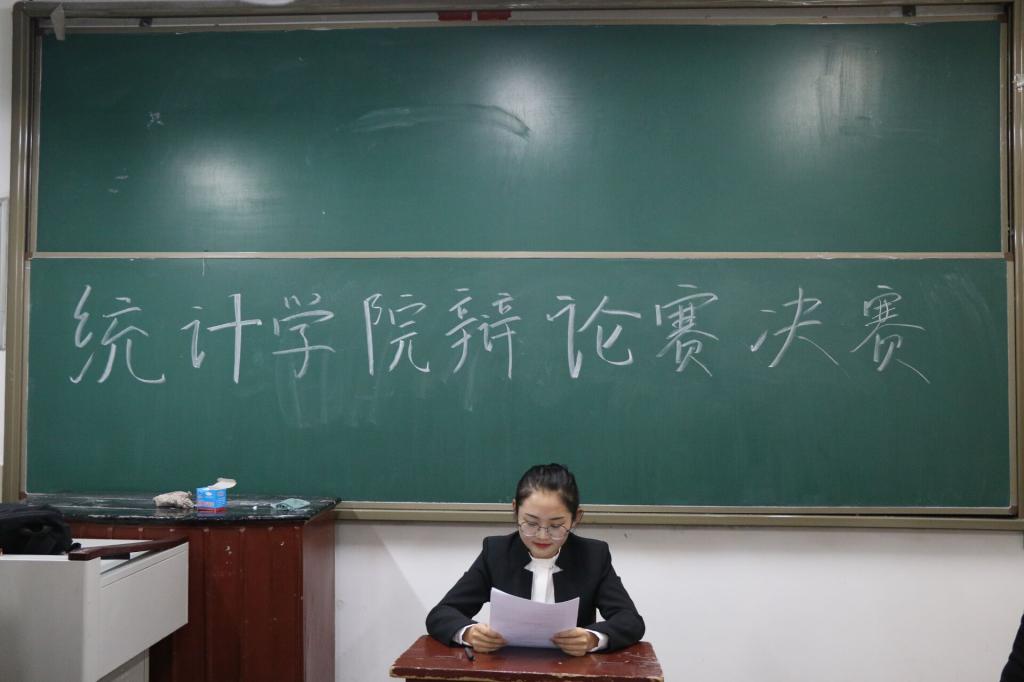 统计学院辩论赛决赛